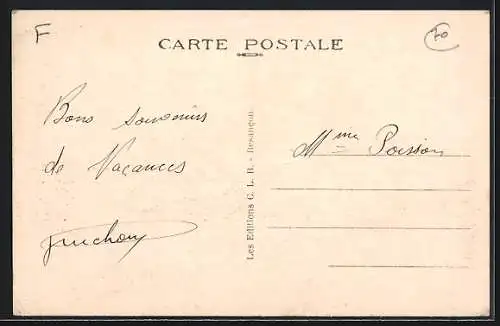 F
70
CARTE POSTALE
Bons souvenirs
de Vacances
Les Editions C. L. B. - Besançon
Mme Poisson